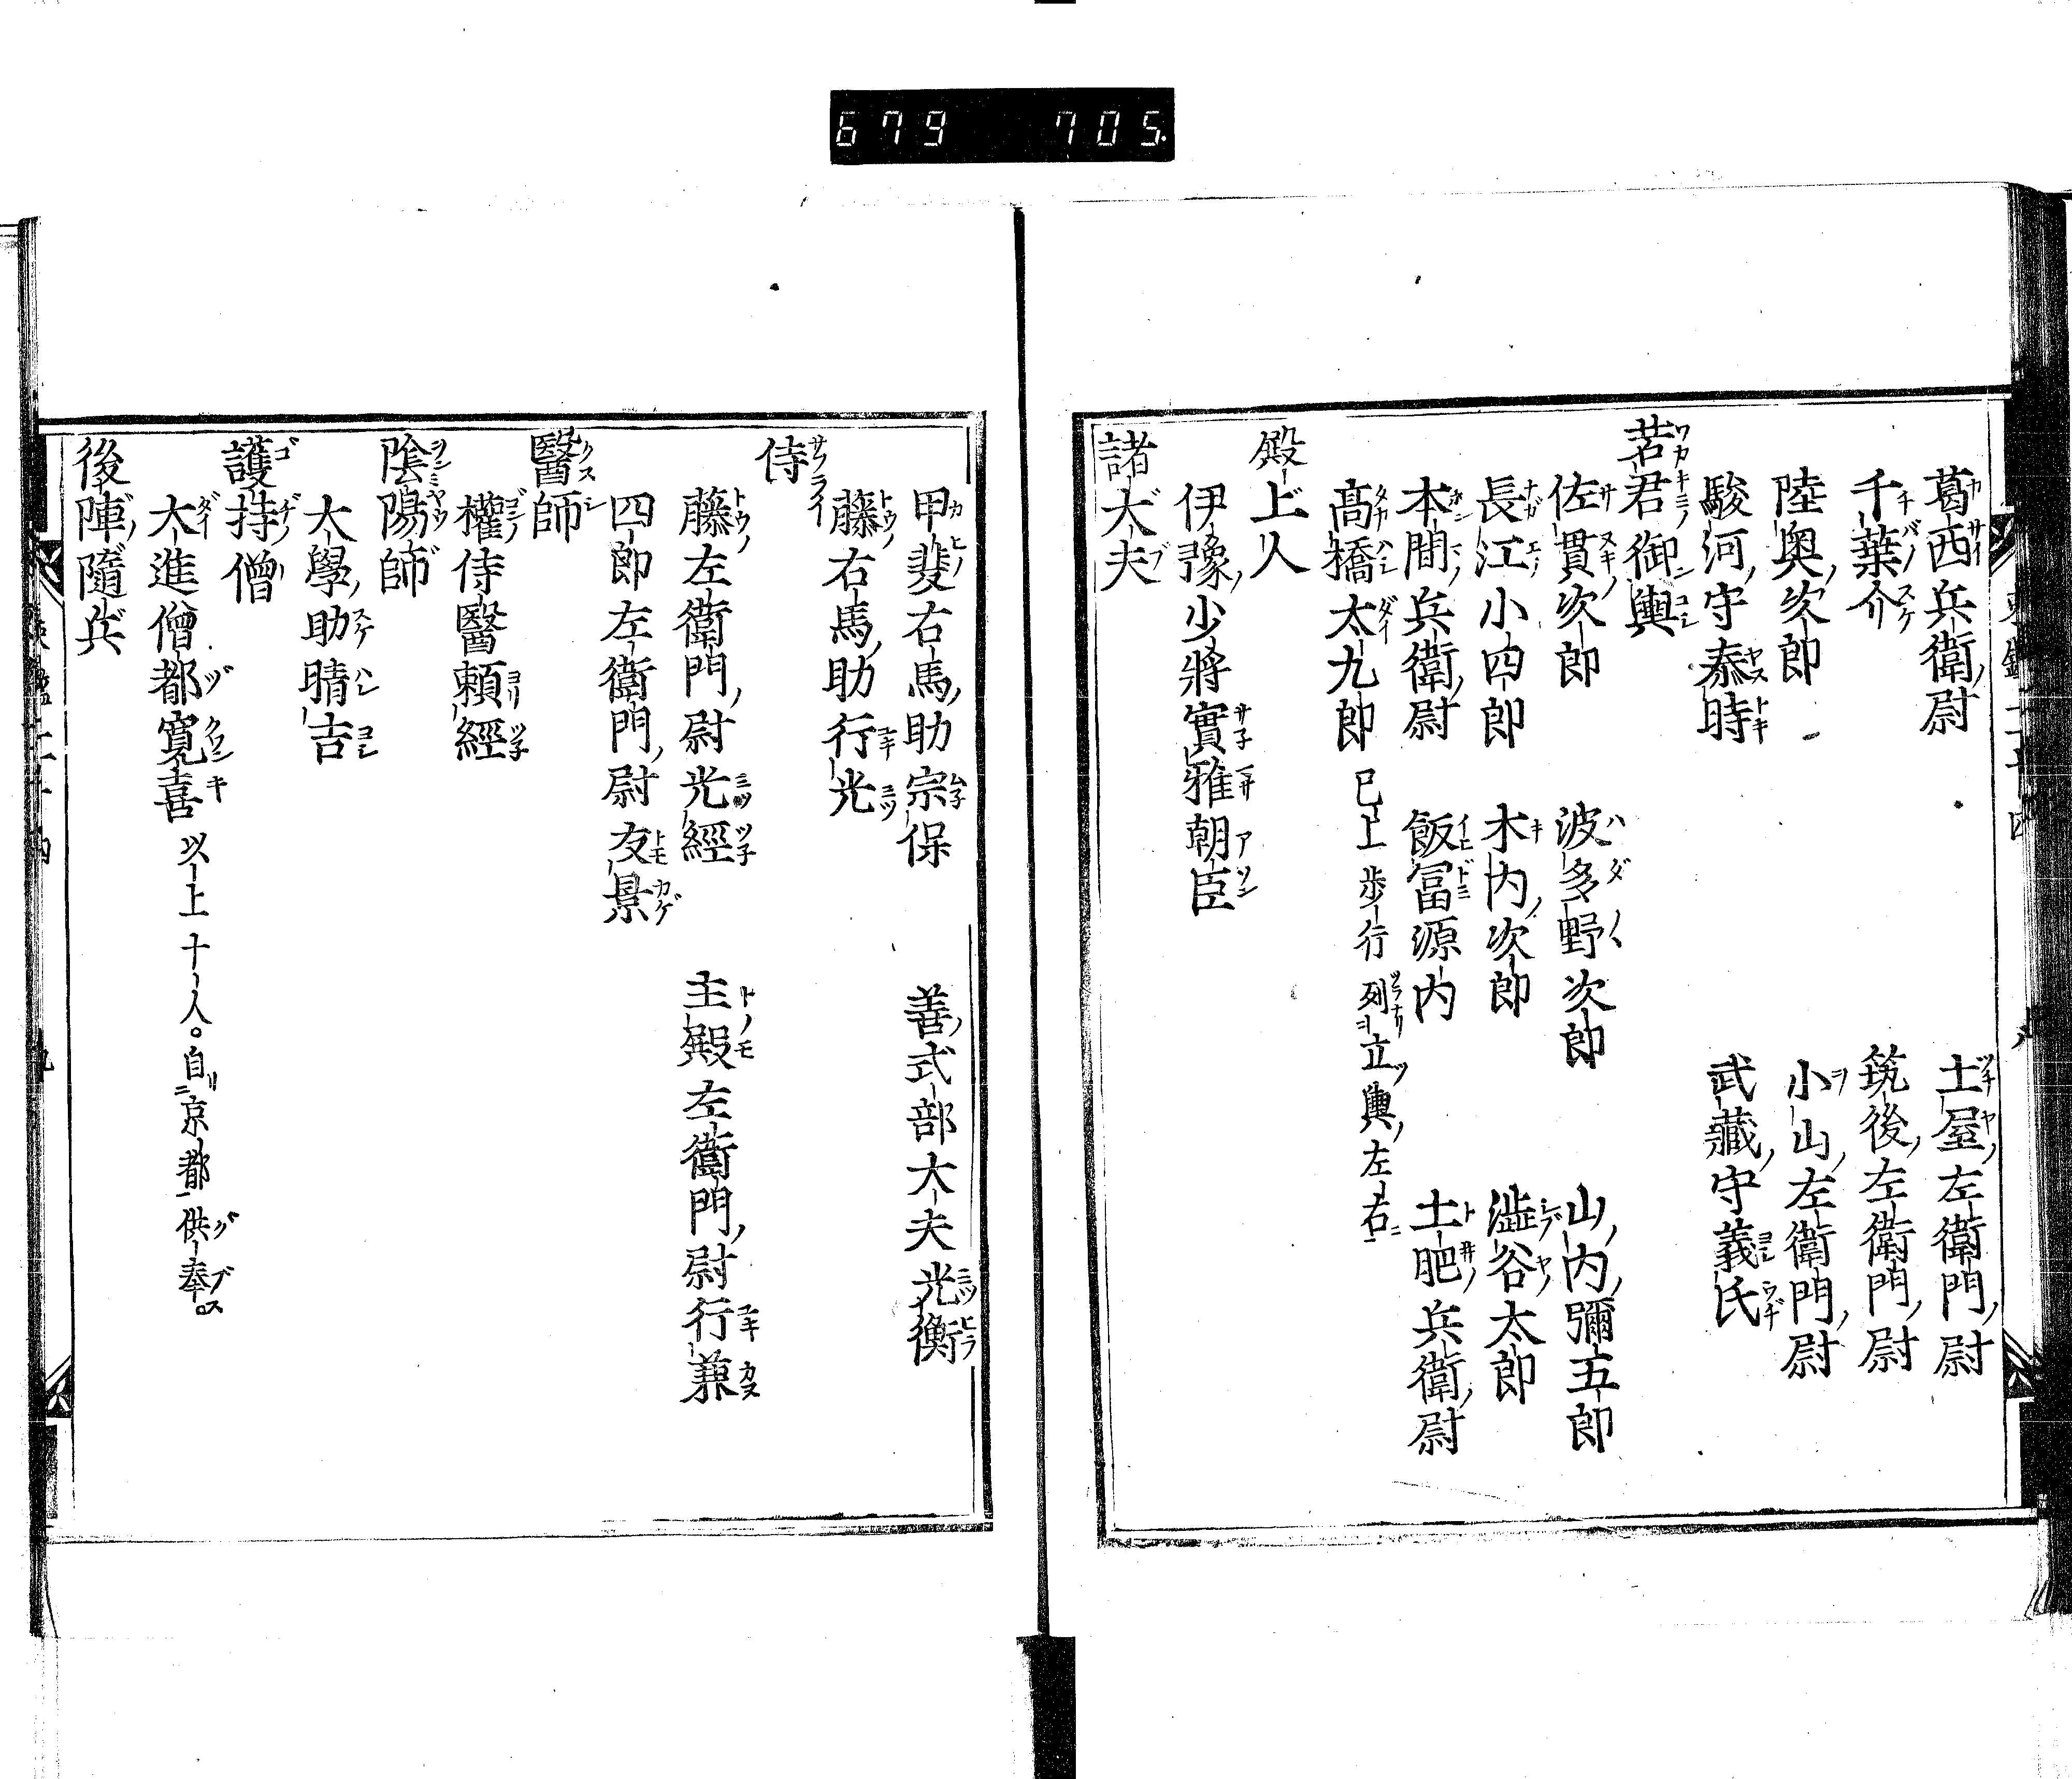 679 705
葛西兵衛尉 土屋左衛門尉
千葉介 筑後左衛門尉
陸奥次郎 小山左衛門尉
駿河守泰時 武藏守義氏
若君御輿
佐貫次郎 波多野次郎 山内彌五郎
長江小四郎 木内次郎 澁谷太郎
本間兵衛尉 飯冨源内 土肥兵衛尉
髙橋太九郎 已上歩行列立輿左右
殿上人
伊豫少將實雅朝臣
諸大夫
甲斐右馬助宗保 善式部大夫光衡
藤右馬助行光
侍
藤左衛門尉光經 主殿左衛門尉行兼
四郎左衛門尉友景
醫師
權侍醫頼經
陰陽師
大學助晴吉
護持僧
大進僧都寛喜 以上十人。自京都供奉。
後陣隨兵